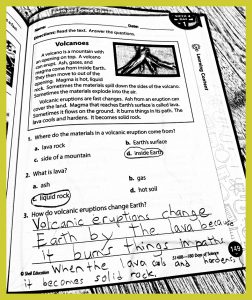 Name:
Date:
Directions: Read the text. Answer the questions.
Volcanoes
A volcano is a mountain with
an opening on top. A volcano
can erupt. Ash, gases, and
magma come from inside Earth.
They then move to out of the
opening. Magma is hot, liquid
rock. Sometimes the materials spill down the sides of the volcano.
Sometimes the materials explode into the air.
Volcanic eruptions are fast changes. Ash from an eruption can
cover the land. Magma that reaches Earth's surface is called lava.
Sometimes it flows on the ground. It burns things in its path. The
lava cools and hardens. It becomes solid rock.
Learning Content
1. Where do the materials in a volcanic eruption come from?
a. lava rock
b. Earth's surface
c. side of a mountain
d. inside Earth
2. What is lava?
a. ash
b. gas
c. liquid rock
d. hot soil
3. How do volcanic eruptions change Earth?
Volcanic eruptions change
Earth by the lava because
it burns things in paths
149
© Shell Education
180 Days of
When the lava cools and hardens,
it becomes solid rock.